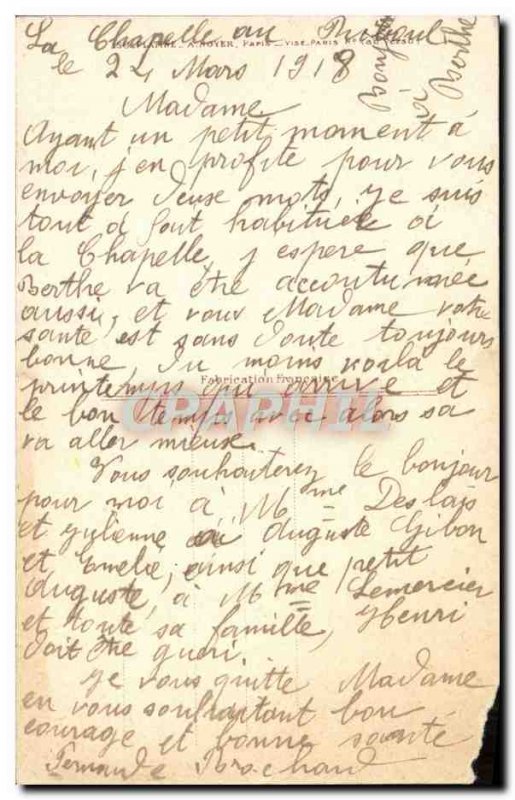 La Chapelle au Riboul
le 24 Mars 1918
Bonjour à Berthe
Madame
Ayant un petit moment à
moi, j'en profite pour vous
envoyer deux mots, je suis
tout à fait habituée à
la Chapelle, j espere que
Berthe va être accoutumée
aussi, et vous Madame votre
santé est sans doute toujours
bonne, du moins voila le
printemps qui arrive et
Fabrication Française
le bon temps avec alors sa
CPAPHIL.COM
va aller mieux.
Vous souhaiterez le bonjour
pour moi à Mme Deslais
et Julienne à Auguste Gibon
et Amelie, ainsi que petit
Auguste, à Mme Lemercier
et toute sa famille, Henri
doit être gueri.
Je vous quitte Madame
en vous souhaitant bon
courage et bonne santé
Fernande Brochard